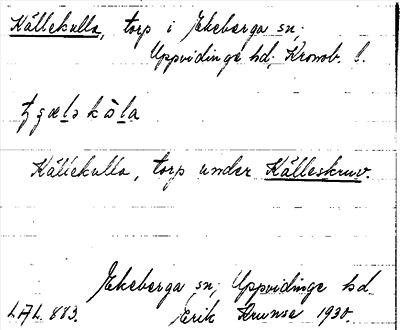 Källekulla, torp i Ekeberga sn;
Uppvidinge hd; Kronob. l.
Källekulla, torp under Källeskruv.
Ekeberga sn; Uppvidinge hd
L.A.L. 883. Erik 1930